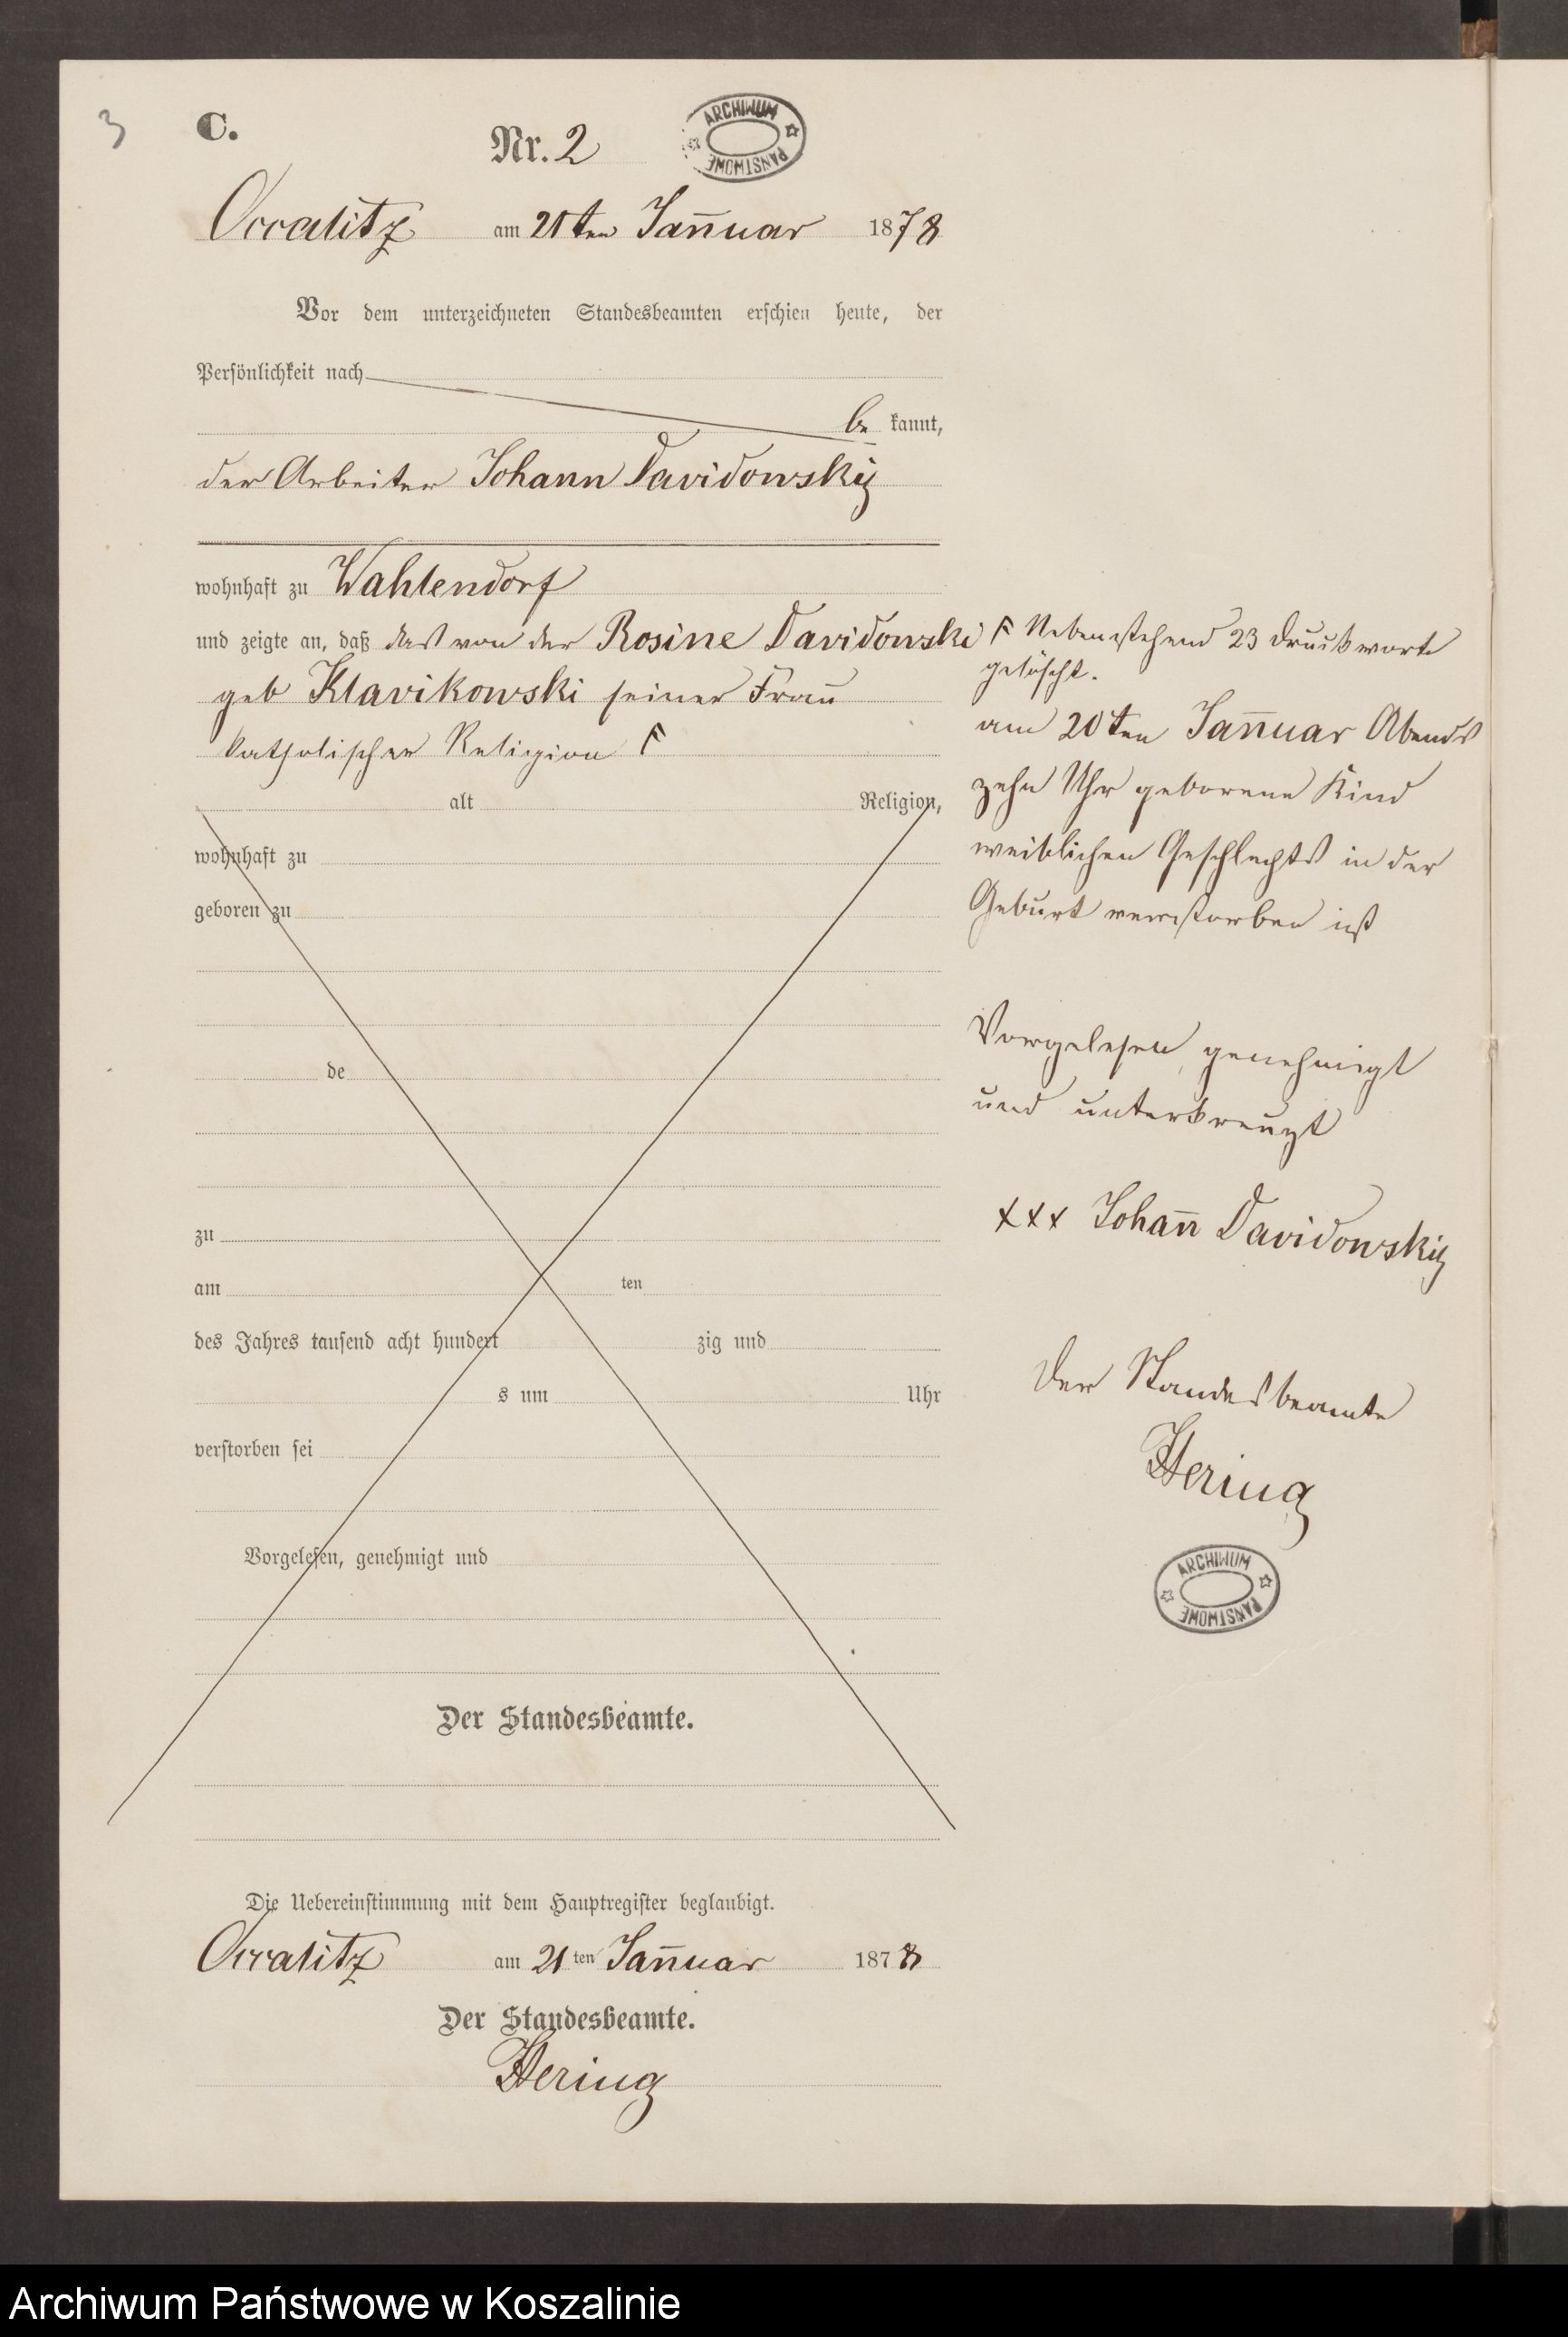 3
C.
Nr. 2
ARCHIWUM PAŃSTWOWE
Occalitz am 21ten Januar 1878
Vor dem unterzeichneten Standesbeamten erschien heute, der
Persönlichkeit nach
be kannt,
der Arbeiter Johann Davidowsky
wohnhaft zu Wahlendorf
und zeigte an, daß das von der Rosine Davidowski
geb Klavikowski seiner Frau
katholischer Religion F
alt Religion,
wohnhaft zu
geboren zu
de
zu
am ten
des Jahres tausend acht hundert zig und
s um Uhr
verstorben sei
Vorgelesen, genehmigt und
Der Standesbeamte.
F Nebenstehend 23 Druckworte
gelöscht.
am 20ten Januar Abends
zehn Uhr geborene Kind
weiblichen Geschlechts in der
Geburt verstorben ist
Vorgelesen, genehmigt
und unterkreuzt
xxx Johann Davidowsky
Der Standesbeamte
Hering
ARCHIWUM PAŃSTWOWE
Die Uebereinstimmung mit dem Hauptregister beglaubigt.
Occalitz am 21ten Januar 1878
Der Standesbeamte.
Hering
Archiwum Państwowe w Koszalinie